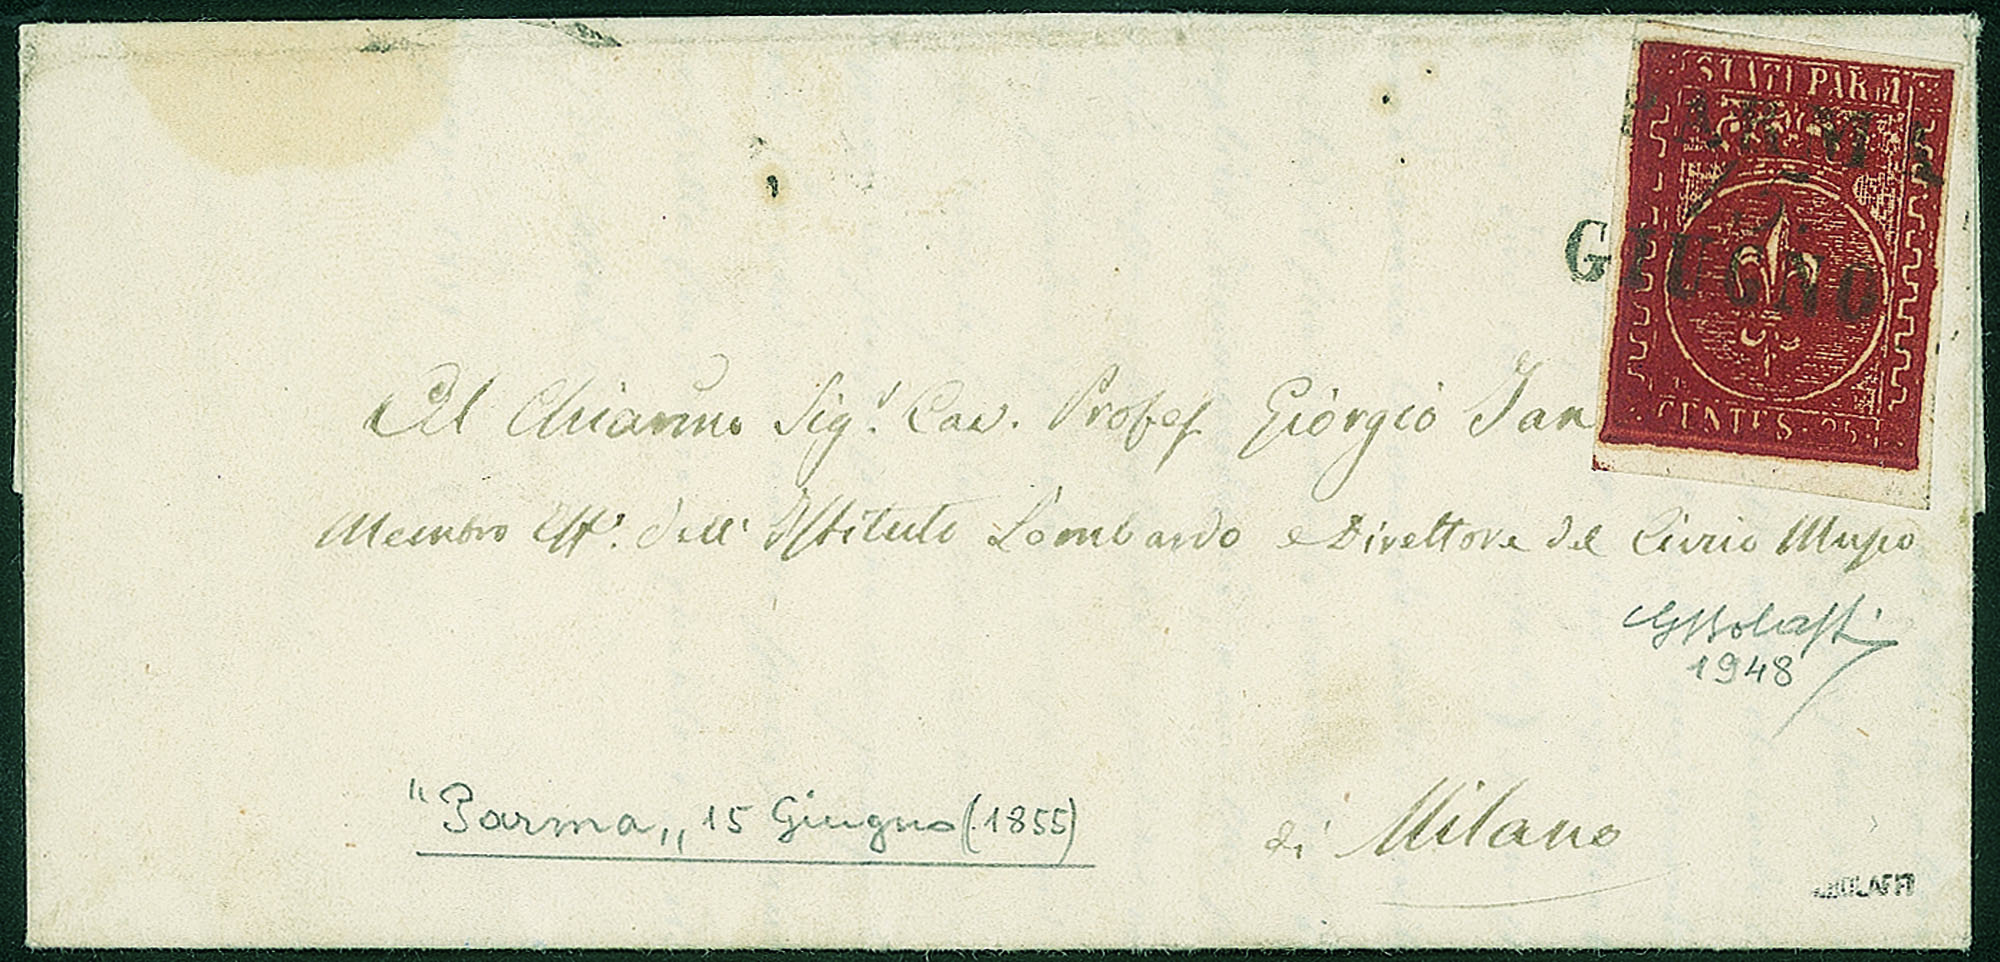 STATI PARM
PARMA
GIUGNO
CENTES. 25
Al Chiarmo Sigr. Cav. Profes. Giorgio Jan
Membro Eff. dell' Istituto Lombardo e Direttore del Civico Museo
1948
"Parma,, 15 Giugno (1855)
di Milano
A.BOLAFFI